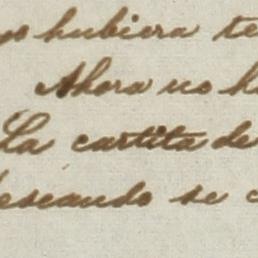 yo hubiera te
Ahora no h
La cartita de
deseando se c